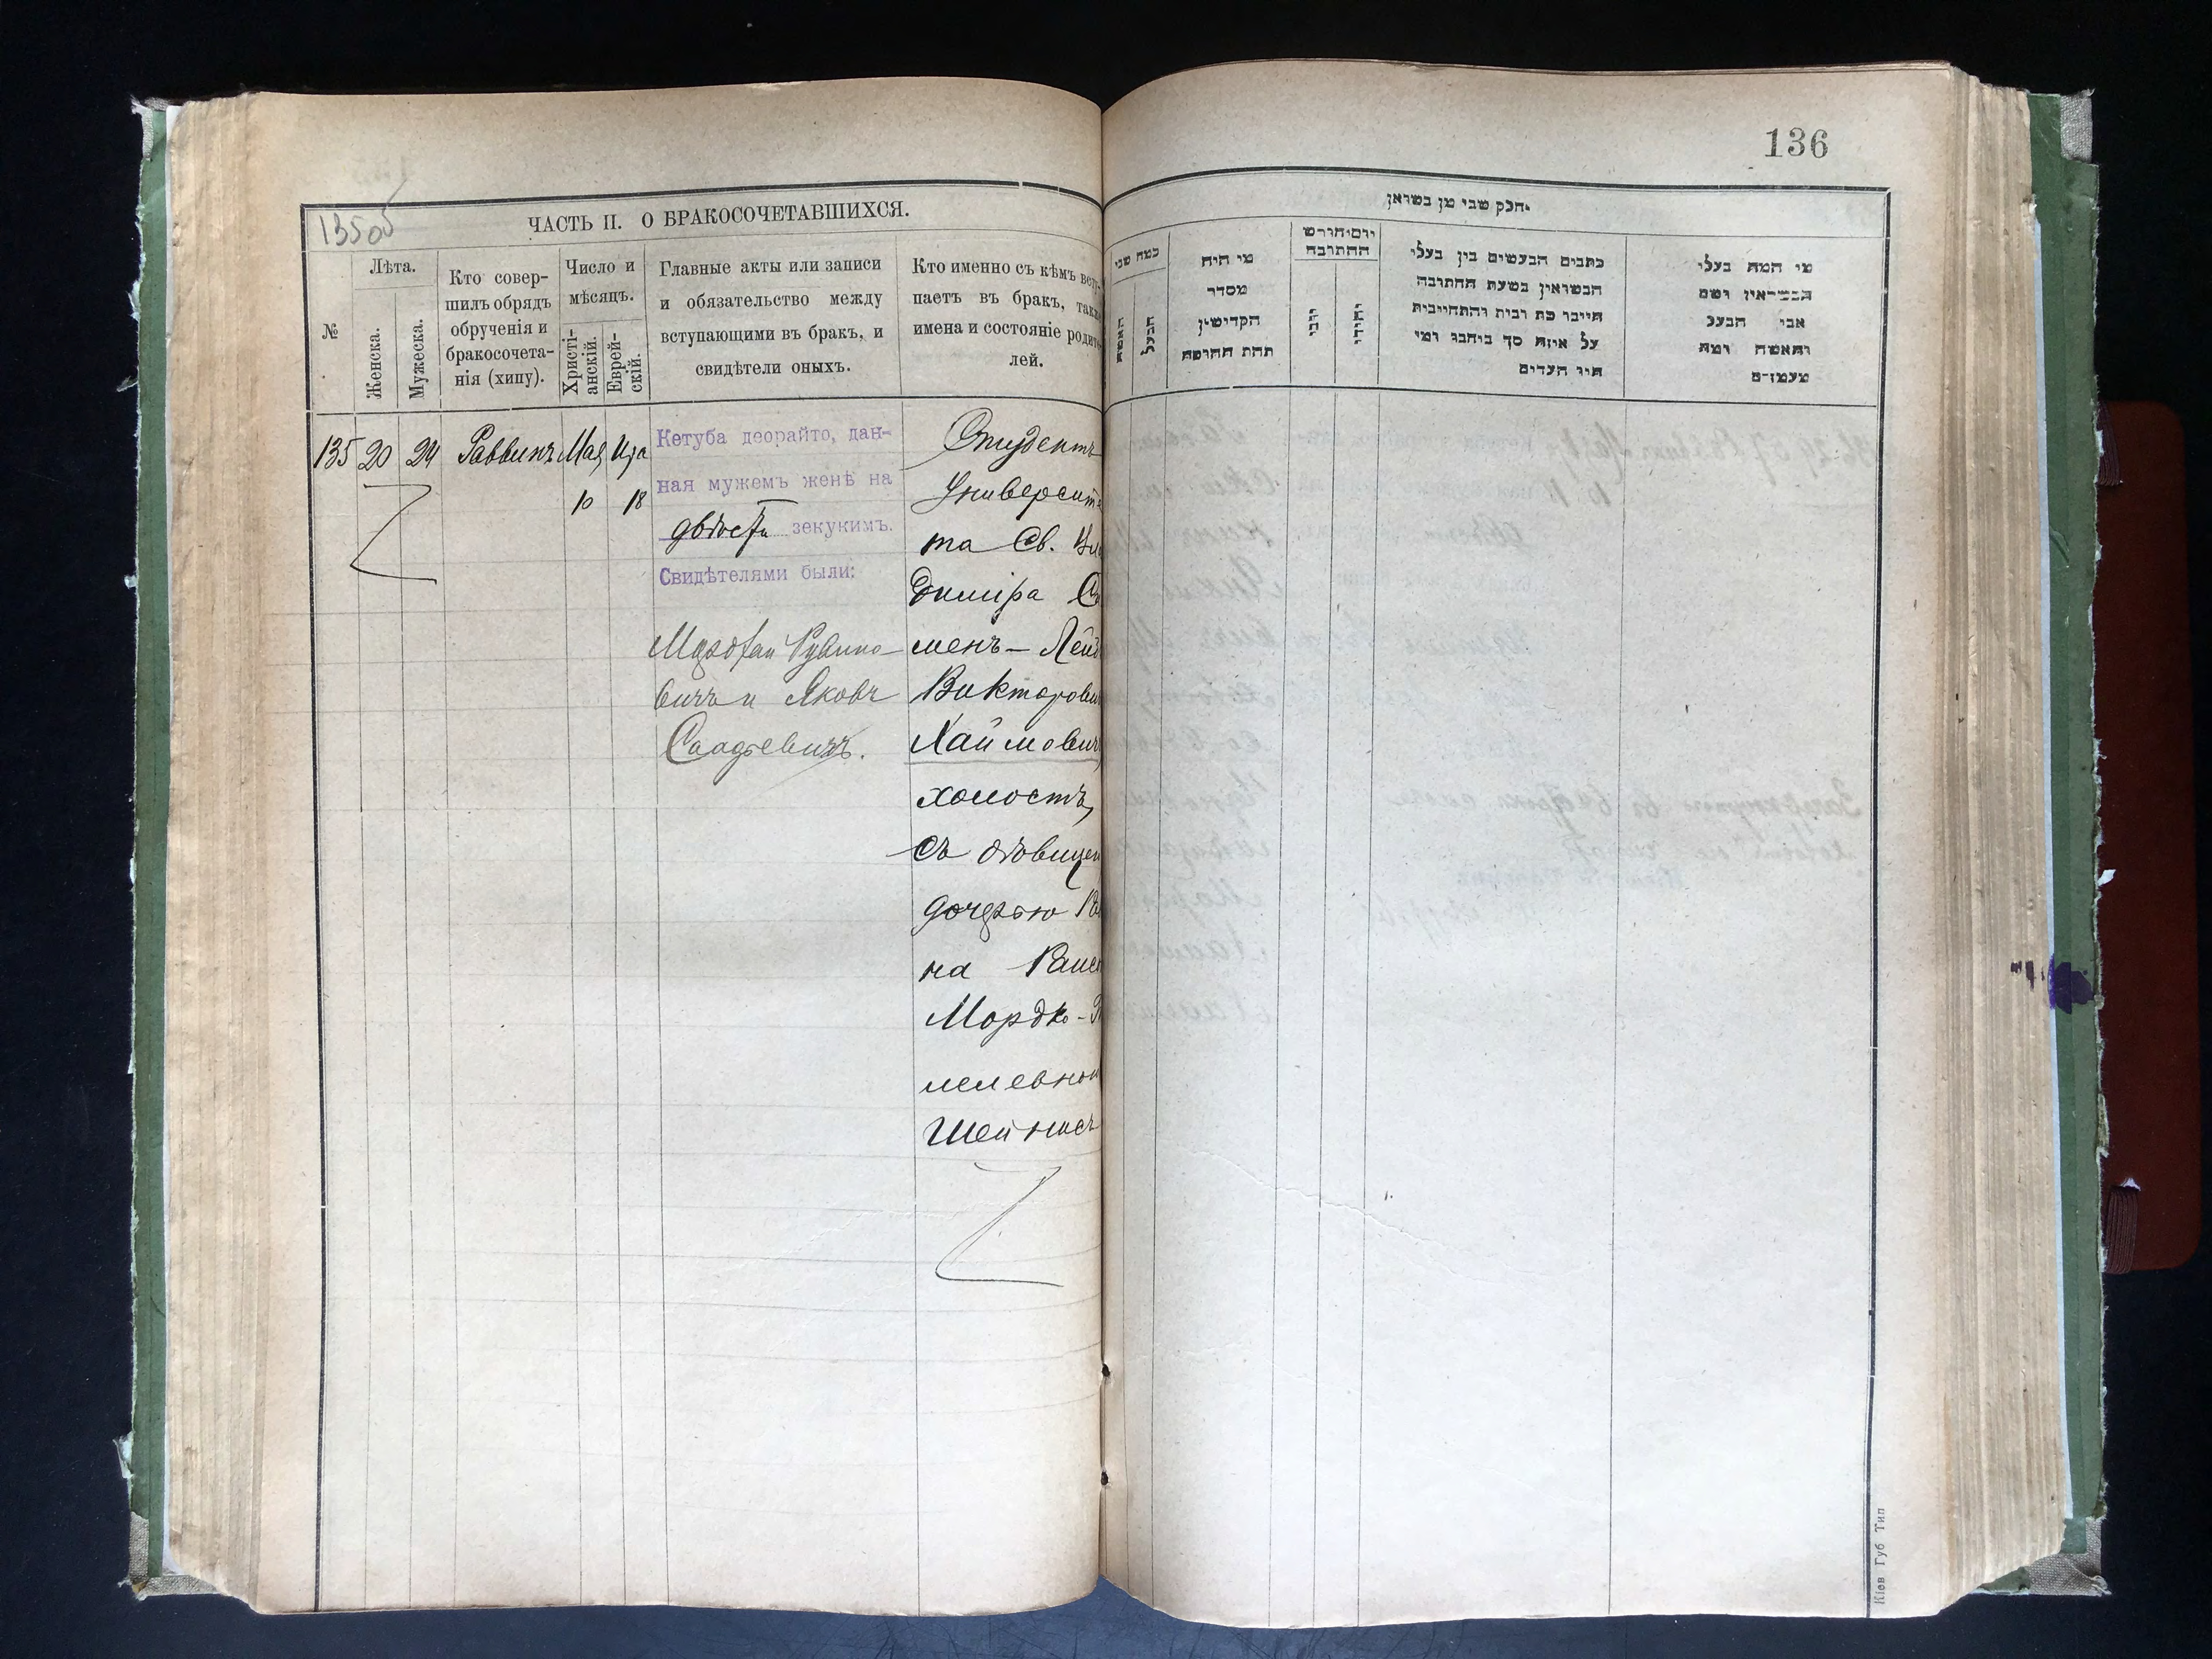 136
135об
ЧАСТЬ II. О БРАКОСОЧЕТАВШИХСЯ.
№
Лѣта.
Женска.
Мужеска.
Кто совер-
шилъ обрядъ
обрученія и
бракосочета-
нія (хипу).
Число и
мѣсяцъ.
Христі-
анскій.
Еврей-
скій.
Главные акты или записи
и обязательство между
вступающими въ бракъ, и
свидѣтели оныхъ.
Кто именно съ кѣмъ всту-
паетъ въ бракъ, также
имена и состояніе родите-
лей.
135 20 24 Раввинъ Мая Ира
10 18
Кетуба деорайто, дан-
ная мужемъ женѣ на
двѣсти зекукимъ.
Свидѣтелями были:
Рувино-
вичъ и Яковъ
Саадьевичъ.
Студентъ
Университе
та Св.
димира
менъ - Лейб
Викторович
Хаймович
холостъ,
съ дѣвицей
дочерью
на
Мордко -
лелевной
Шейнисъ
חלק שני מן נשואין
כמה שני
האשה
הבעל
מי היה
מסדר
הקדישין
תחת החופה
יום וחודש
החתונה
נוצרי
יהודי
כתבים הנעשים בין בעלי
הנשואין בשעת החתונה
על איזה סך נכתבו ומי
היו העדים
מי המה בעלי
הנשואין ושם
אבי הבעל
והאשה ומה
מעמדם
Кіев Губ Тип